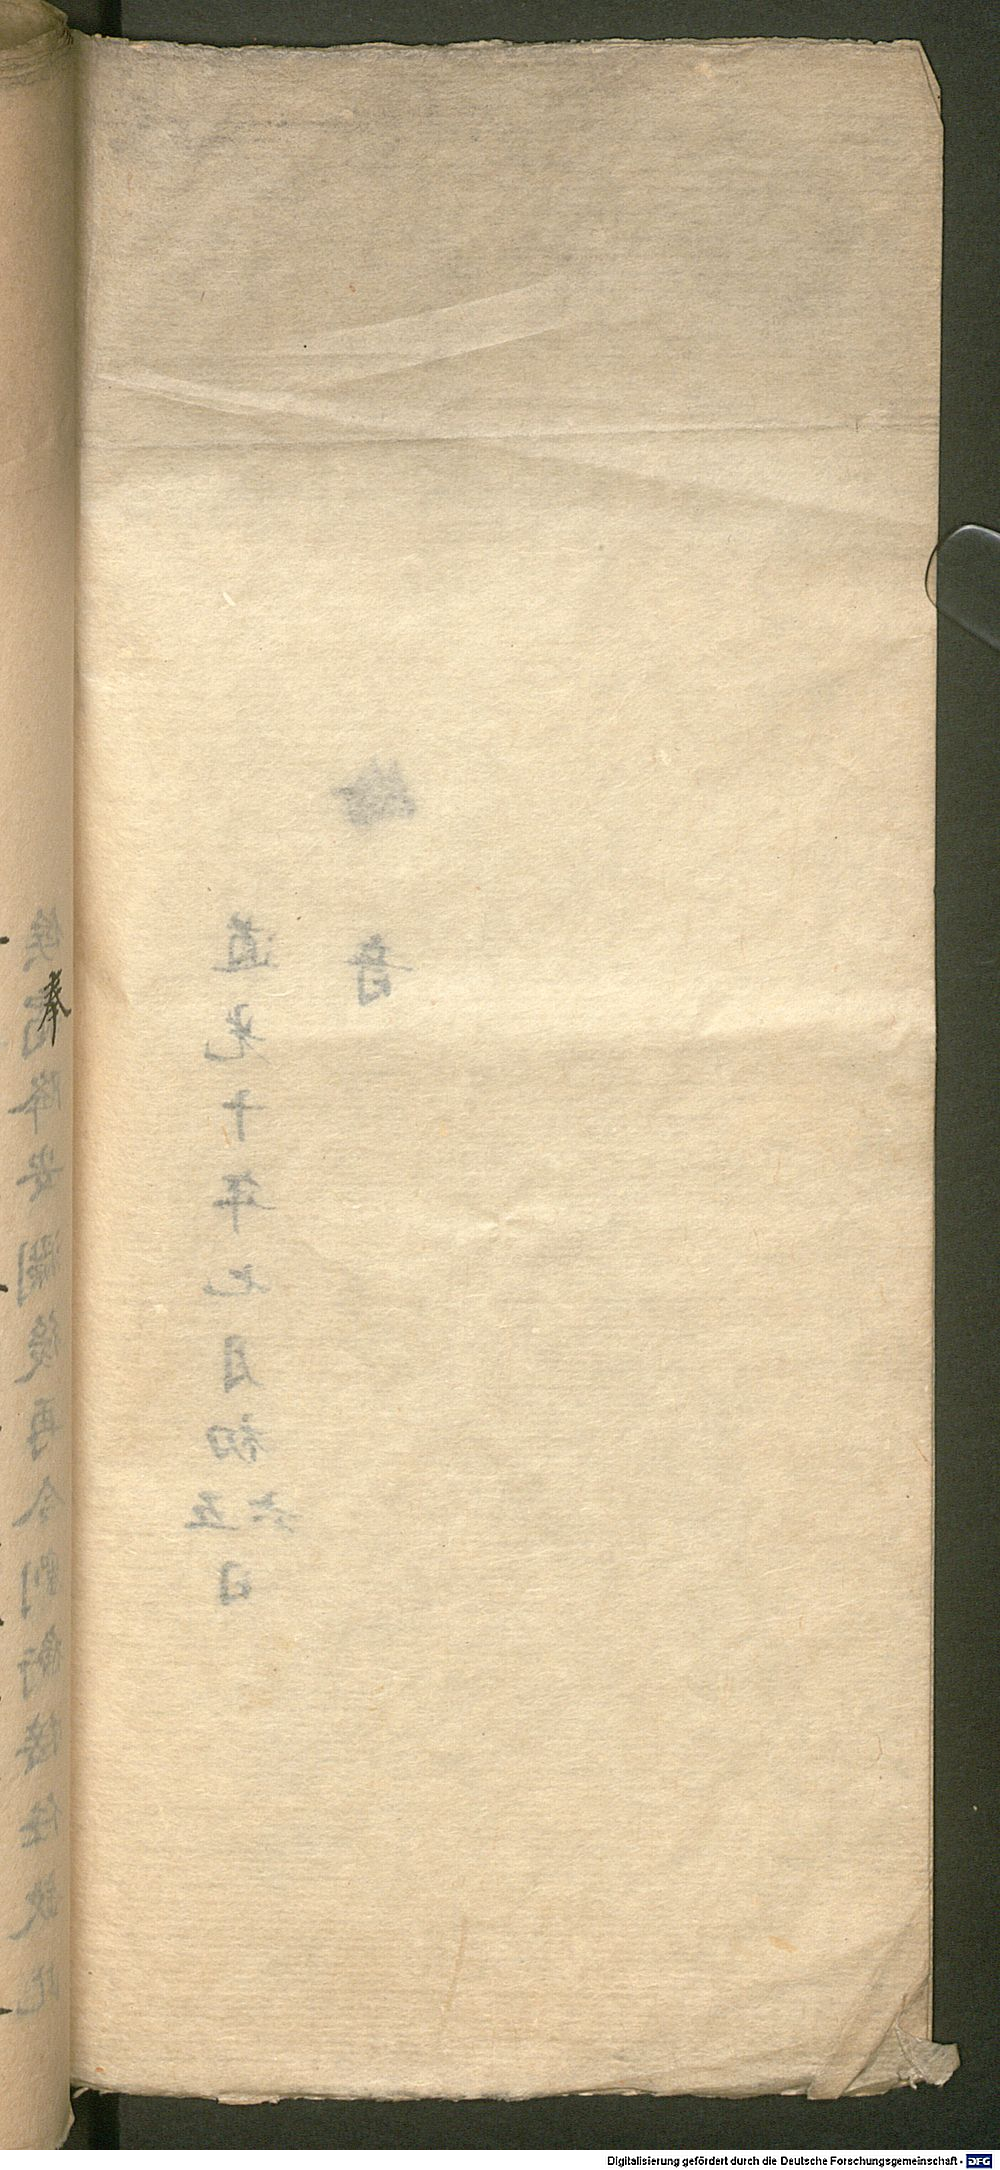 道光十年七月初五六日
奉
候霜降安瀾後再令劉衡接任欽此
Digitalisierung gefördert durch die Deutsche Forschungsgemeinschaft - DFG